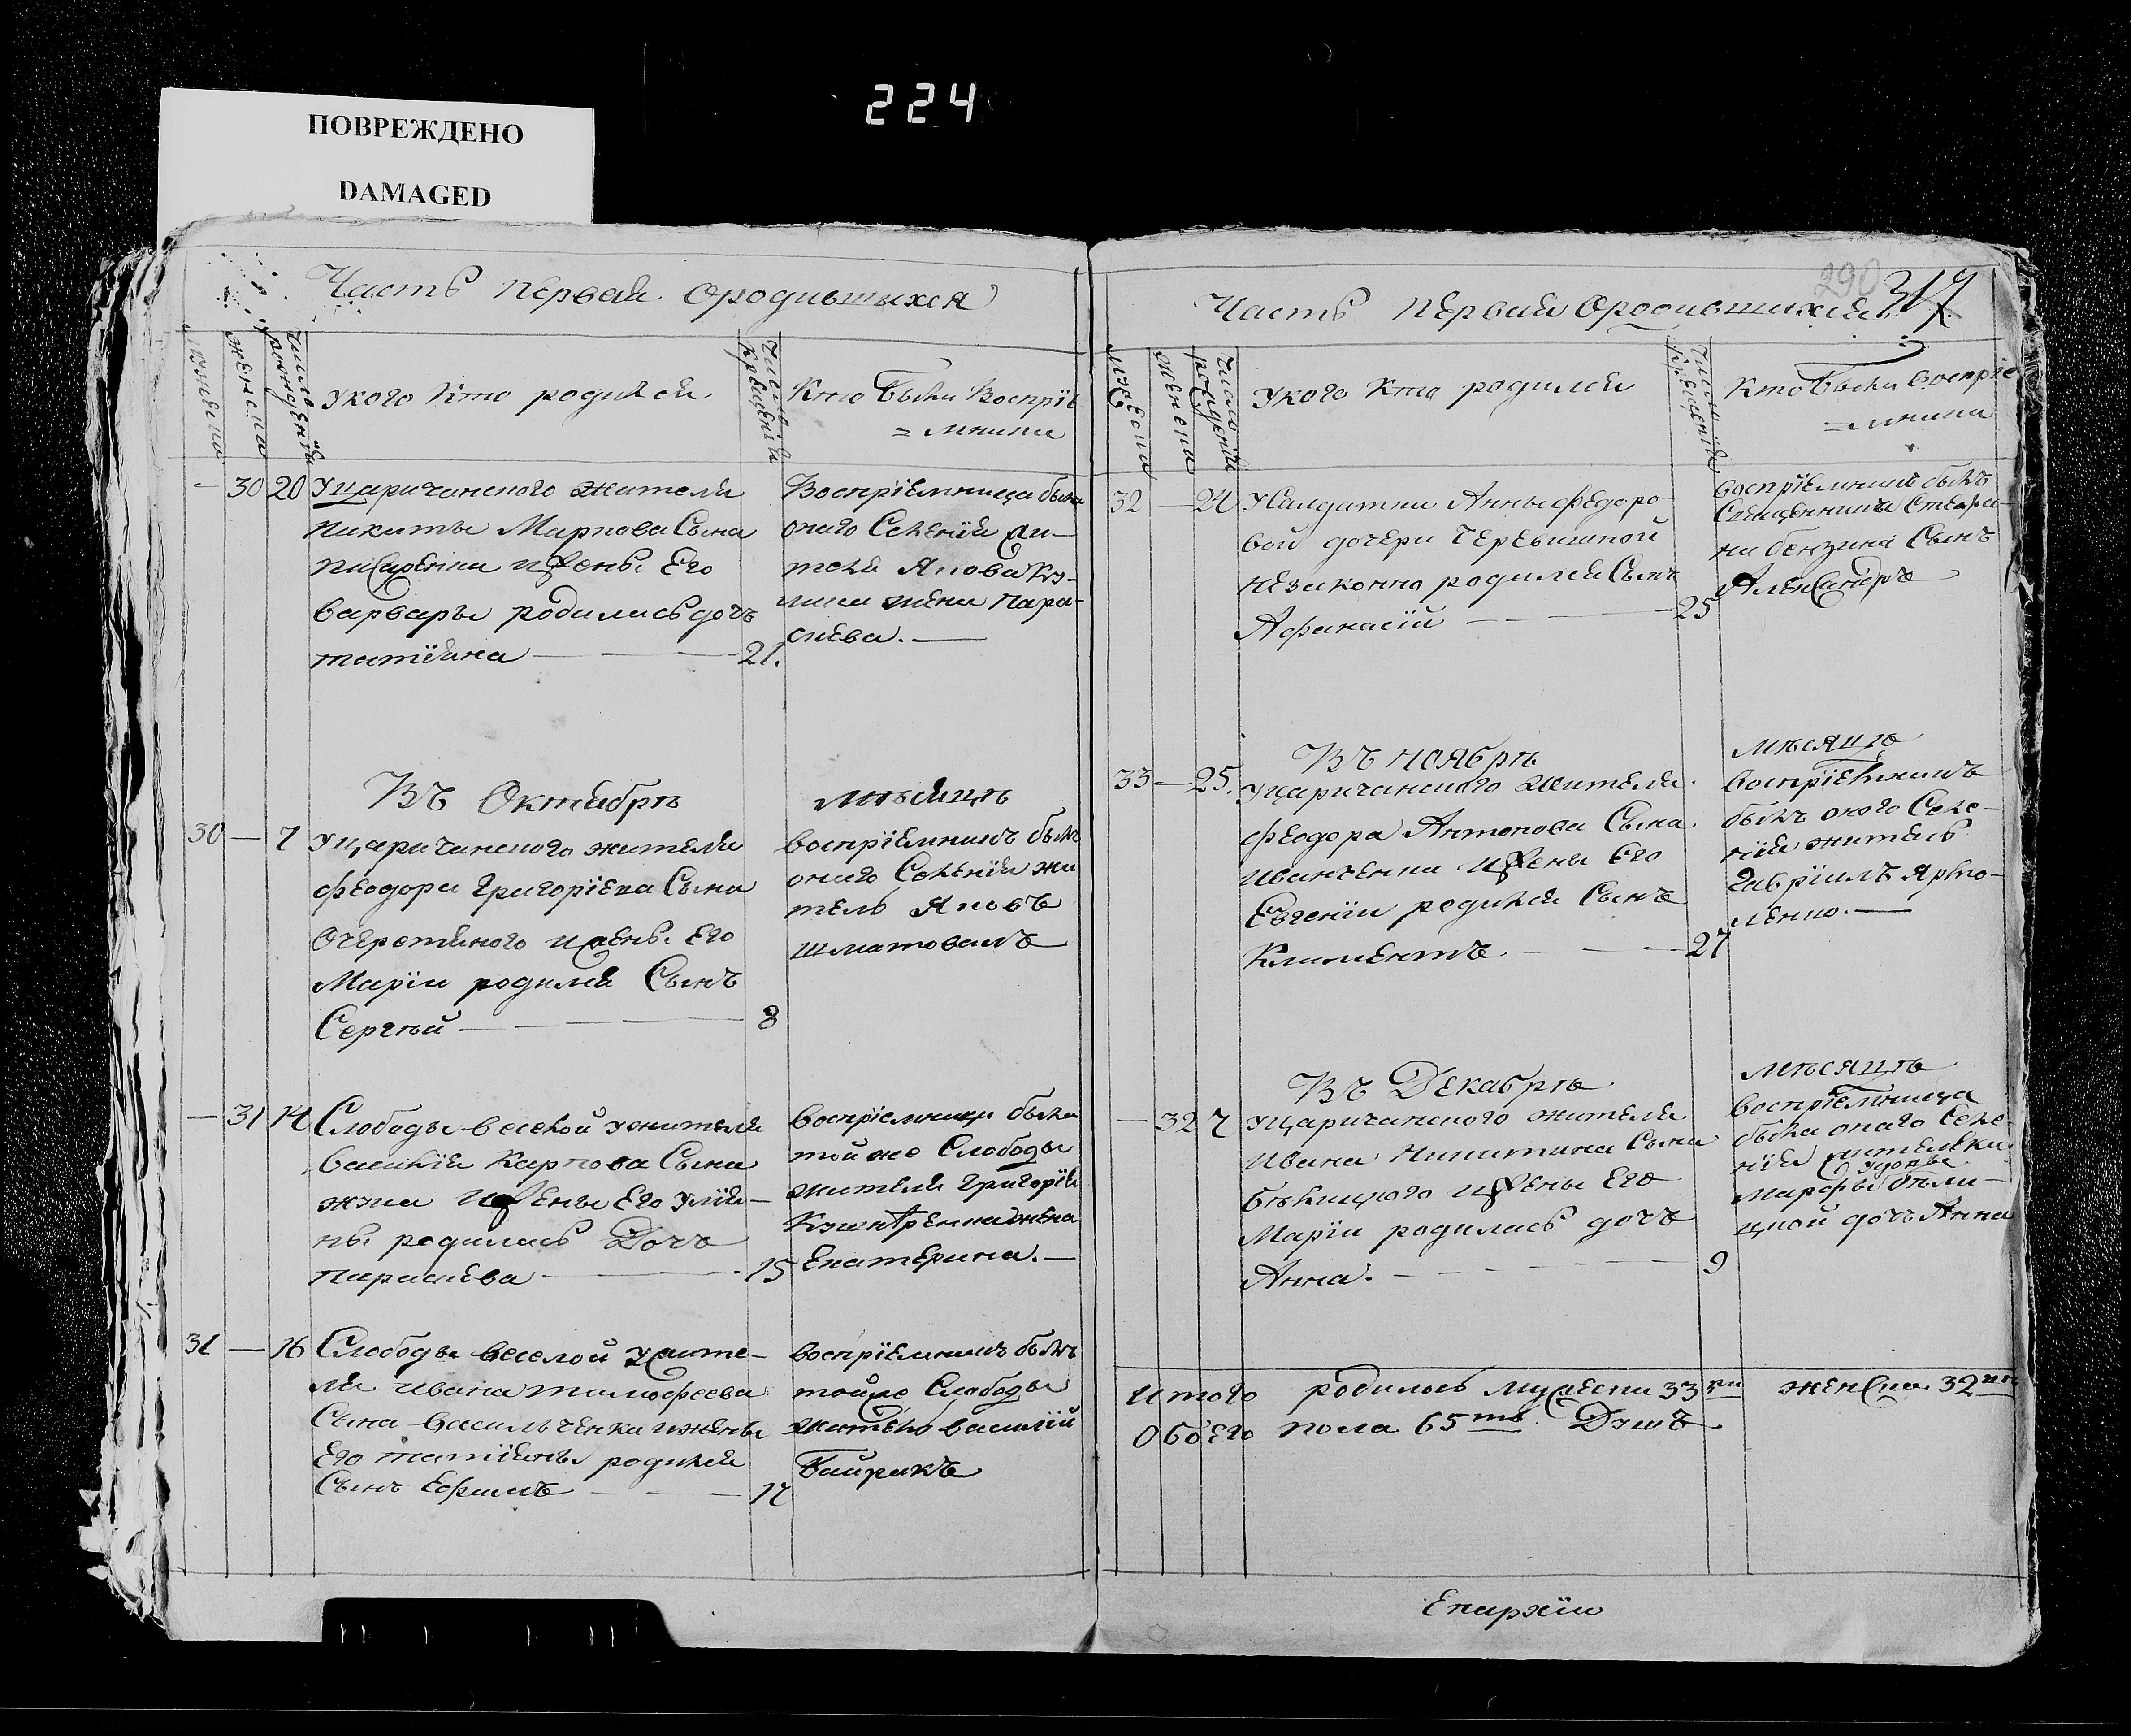 224
ПОВРЕЖДЕНО
DAMAGED
Часть первая ородившихся
мужеска
женска
Число рожденїя
укого кто родился
Число крещенїя
Кто были Воспрїе
= мники
30 20 уцаричанского жителя
никиты Маркова Сына
писаренка ижены Его
варвары родилась дочъ
татїяна 21.
Воспрїемница была
оного Селенїя жи-
теля Якова
жена пара-
скева.
Въ Октябрѣ мѣсяцѣ
30 7 уцаричанского жителя
феодора Григорїева Сына
Очеретяного ижены Его
Марїи родился Сынъ
Сергѣй 8
воспрїемникъ былъ
оного Селенїя жи
тель Яковъ
шматовалъ
31 14 Слободы веселой ужителя
василїя Карпова Сына
ижены Его улїя-
ны родилась Дочъ
параскева 15
воспрїемница была
тойже Слободы
жителя григорїя
жена
Екатерина.
31 16 Слободы веселой ужите-
ля ивана тимофеева
Сына васильченка ижены
Его татїяны родился
Сынъ Ефимъ 17
воспрїемникъ былъ
тойже Слободы
житель василїй
Байракъ
290 317
Часть первая ородившихся
мужеска
женска
Число рожденїя
укого кто родился
Число крещенїя
кто были воспрїе
= мники
32 24 уСалдатки Анны федоро-
вой дочери Черевишной
незаконно родился Сынъ
Афанасїй 25
воспрїемникъ былъ
Священника Стефа-
на бензина Сынъ
Александръ
Въ ноябрѣ мѣсяцѣ
33 25. уцаричанского жителя
феодора Антонова Сына
иванченка ижены Его
Евгенїи родился Сынъ
Климентъ 27
воспрїемникъ
былъ оного Селе-
нїя житель
гаврїилъ Ярмо-
ленко.
Въ Декабрѣ мѣсяцѣ
32 7 уцаричанского жителя
ивана никитина Сына
бѣлицкого ижены Его
Марїи родилась дочъ
Анна. 9
воспрїемница
была оного Селе-
нїя жителки
Марфы бѣли-
цкой дочъ Анна
Итого родилось мужеска 33 ри женска 32
Обоего пола 65ть Душъ
Епархїи